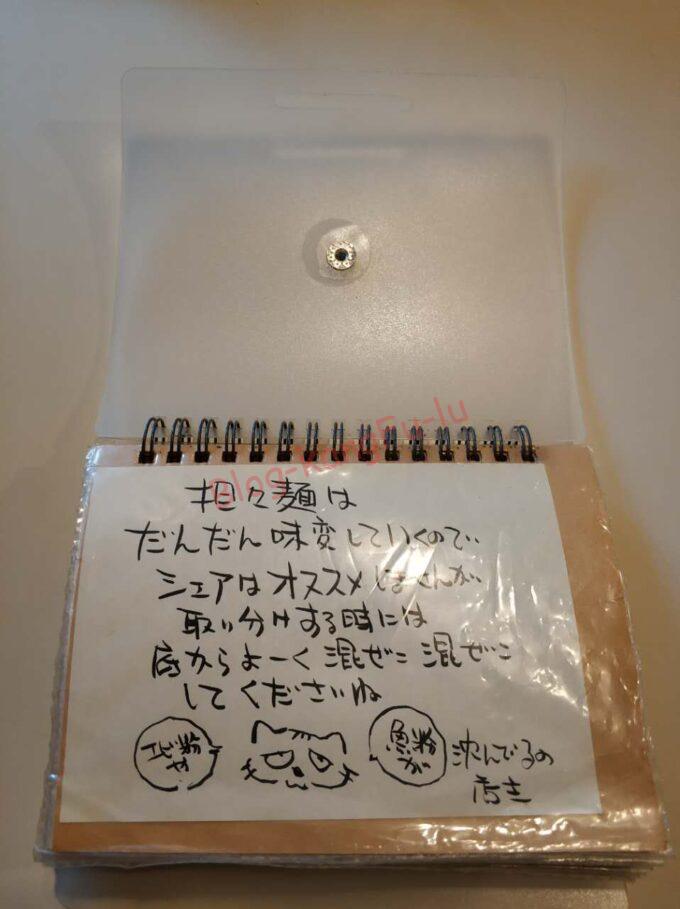 Blog-KongFu-lu
担々麺は
だんだん味変していくので、
シェアはオススメしませんが
取り分けする時には
底からよーく混ぜこ混ぜこ
してくださいね
魚粉が
沈んでるの